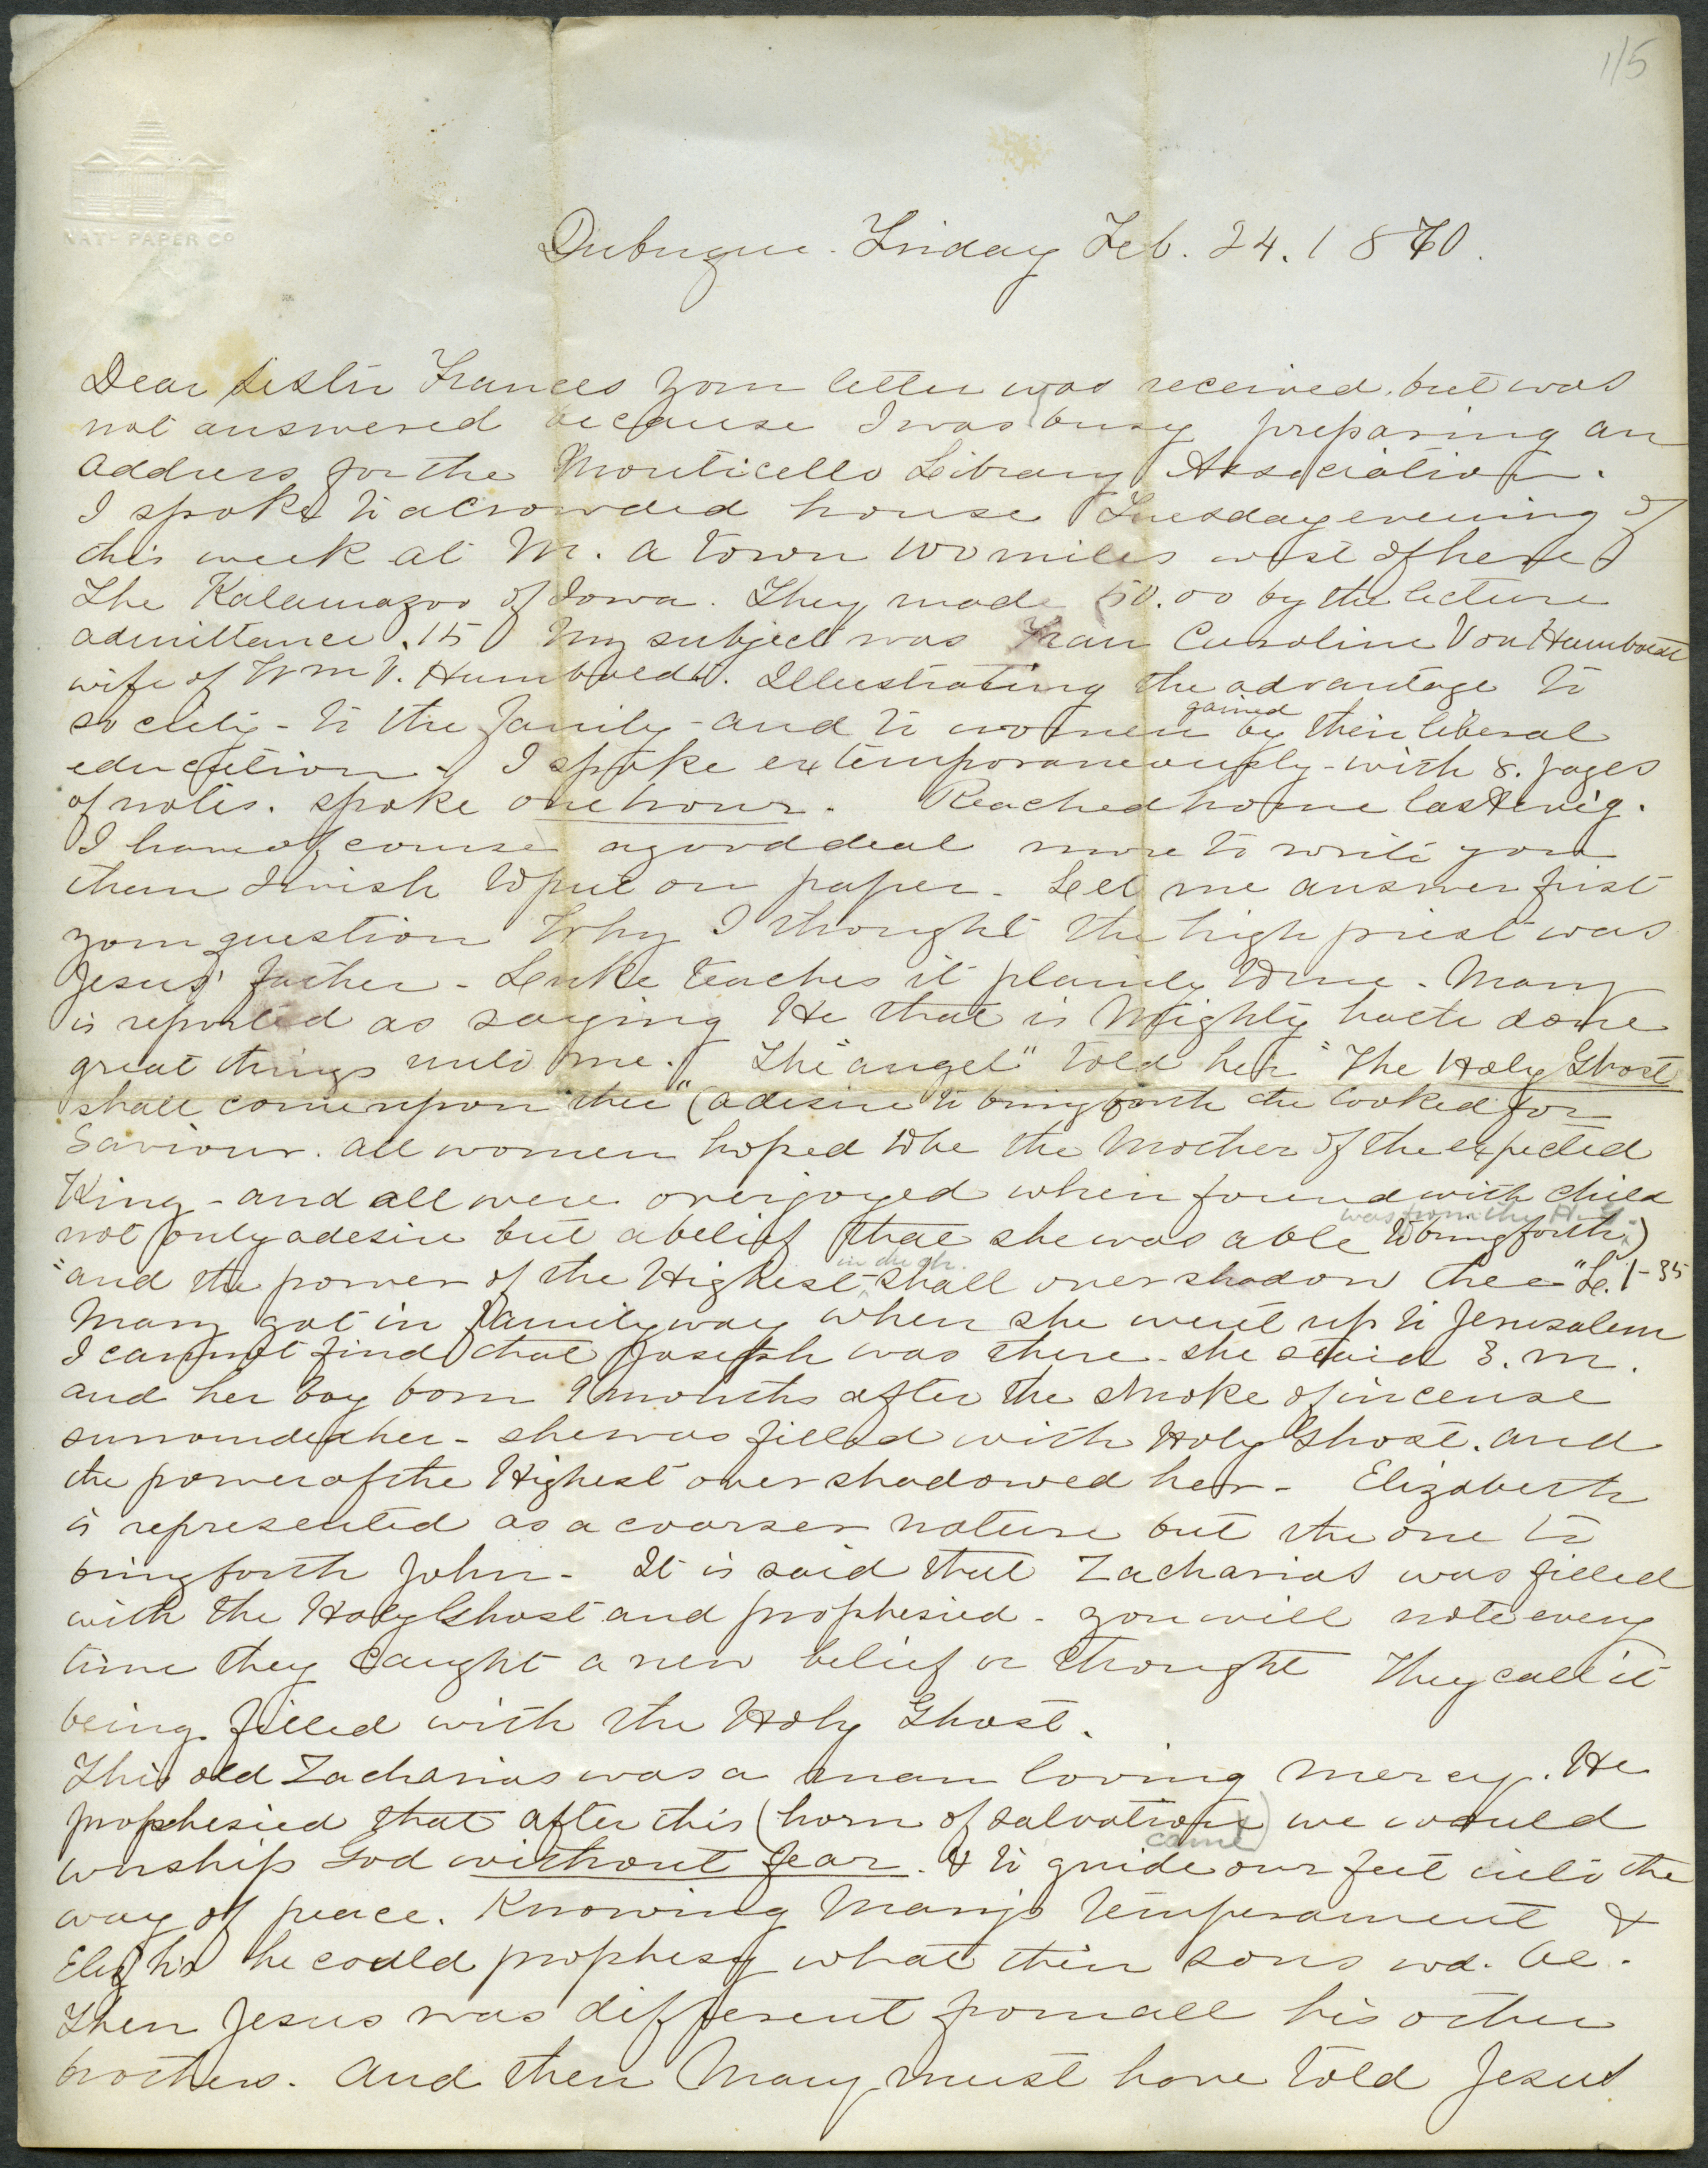 115
NATH PAPER Co
Dubuque. Friday Feb. 24. 1870.
Dear Sister Frances your letter was received, but was
not answered because I was busy preparing an
address for the Monticello Library Association.
I spoke to a crowded house Tuesday evening of
this week at M. a town 100 miles west of here
The Kalamazoo of Iowa. They made 50.00 by the lecture
admittance .15 My subject was Frau Caroline Von Humboldt
wife of Wm V. Humboldt. Illustrating the advantage to
society - to the family - and to women gained by their liberal
education. I spoke extemporaneously - with 8. pages
of notes. spoke one hour. Reached home last ev'g.
I have of course a good deal more to write you
than I wish to put on paper. Let me answer first
your question Why I thought the high priest was
Jesus' father - Luke teaches it plainly to me. Mary
is reported as saying He that is Mighty hath done
great things unto me. The "angel" told her "The Holy Ghost
shall come upon thee" (a desire to bring forth the looked for
Saviour. all women hoped to be the Mother of the expected
King - and all were overjoyed when found with child
not only a desire but a belief that she was able to bring forth) was from the H. G.
"and the power of the Highest shall overshadow thee" L. 1-35
Mary got in family way when she went up to Jerusalem
I cannot find that Joseph was there - she staid 3. m.
and her boy born 9 months after the smoke of incense
surrounded her - she was filled with Holy Ghost. and
the power of the Highest overshadowed her - Elizabeth
is represented as a coarser nature but the one to
bring forth John - It is said that Zacharias was filled
with the Holy Ghost and prophesied - you will note every
time they caught a new belief or thought they call it
being filled with the Holy Ghost.
This old Zacharias was a man loving mercy. He
prophesied that after this (horn of salvation came) we would
worship God without fear. & to guide our feet into the
way of peace. Knowing Mary's temperament &
Eliz'h's he could prophesy what their sons wd. be.
Then Jesus was different from all his other
brothers. And then Mary must have told Jesus